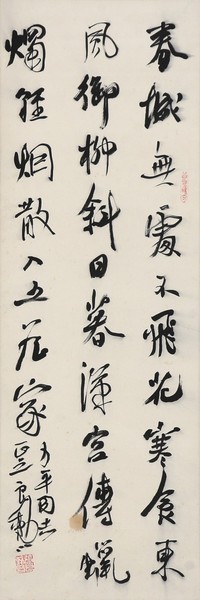 春城無處不飛花寒食東
風御柳斜日暮漢宮傳蠟
燭輕烟散入五侯家
平同志
正之